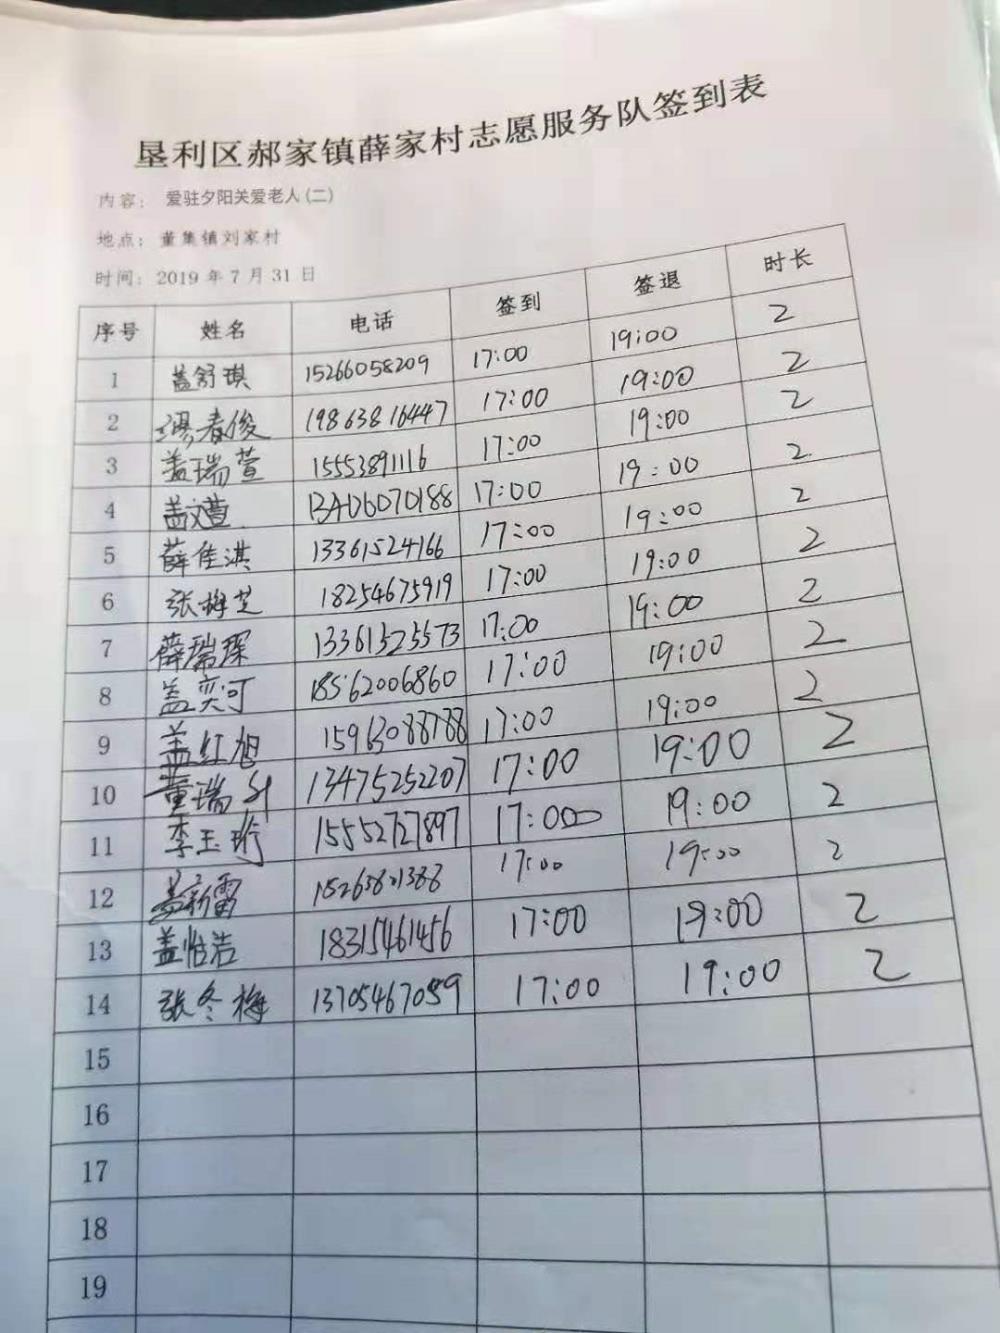 垦利区郝家镇薛家村志愿服务队签到表
内容： 爱驻夕阳关爱老人(二)
地点：董集镇刘家村
时间：2019 年 7 月 31 日
序号 姓名 电话 签到 签退 时长
1 盖舒琪 15266058209 17:00 19:00 2
2 缪春俊 19863816447 17:00 19:00 2
3 盖瑞萱 15553891116 17:00 19:00 2
4 盖文萱 17:00 19:00 2
5 薛佳淇 13361524166 17:00 19:00 2
6 张梅芝 18254675919 17:00 19:00 2
7 薛瑞琛 13361525573 17:00 19:00 2
8 盖奕可 18562006860 17:00 19:00 2
9 盖红旭 15963088788 17:00 19:00 2
10 董瑞 13475252207 17:00 19:00 2
11 李玉珩 15552727897 17:00 19:00 2
12 盖新雷 15263801388 17:00 19:00 2
13 盖怡浩 18315461456 17:00 19:00 2
14 张冬梅 13705467059 17:00 19:00 2
15
16
17
18
19